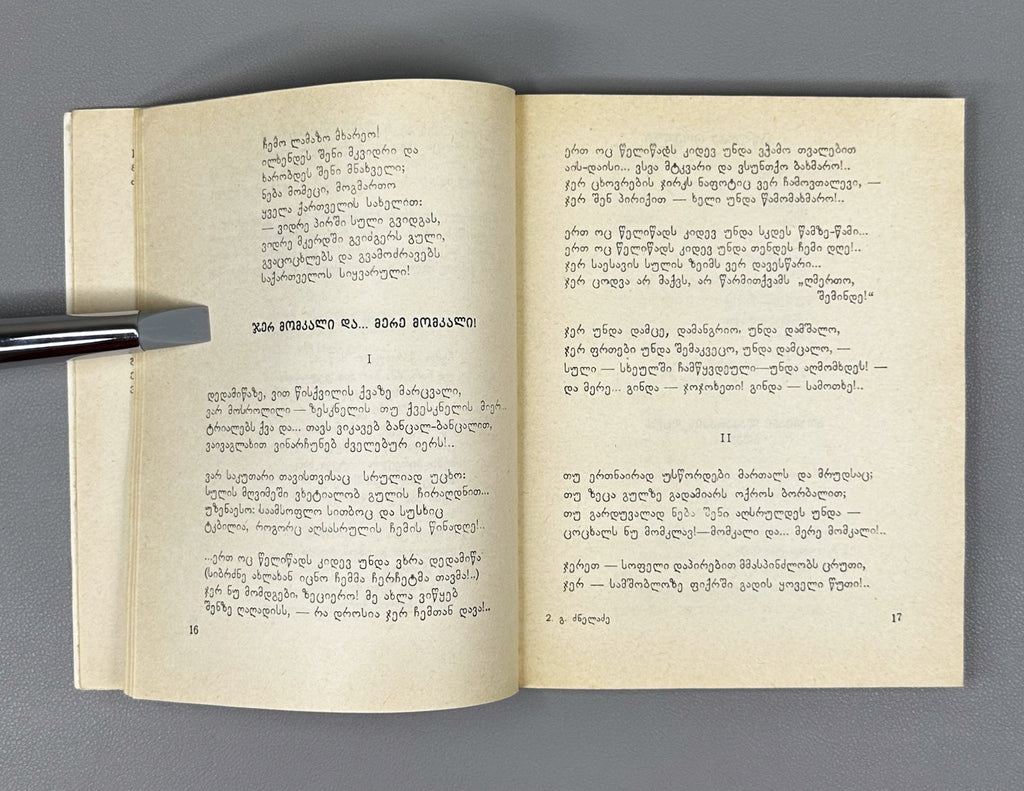 ჩემო ლამაზო მხარეო!
ილხენდეს შენი მკვიდრი და
ხარობდეს შენი მნახველი;
ნება მომეცი, მოგმართო
ყველა ქართველის სახელით:
— ვიდრე პირში სული გვიდგას,
ვიდრე მკერდში გვიძგერს გული,
გვაცოცხლებს და გვამოძრავებს
საქართველოს სიყვარული!
ჯერ მომკალი და... მერე მომკალი!
I
დედამიწაზე, ვით წისქვილის ქვაზე მარცვალი,
ვარ მოსროლილი — ზესკნელის თუ ქვესკნელის მიერ..
ტრიალებს ქვა და... თავს ვიკავებ ბანცალ-ბანცალით,
ვაივაგლახით ვინარჩუნებ ძველებურ იერს!..
ვარ საკუთარი თავისთვისაც სრულიად უცხო:
სულის მღვიმეში ვხეტიალობ გულის ჩირაღდნით...
უზენაესო: საამსოფლო სითბოც და სუსხიც
ტკბილია, როგორც აღსასრულის ჩემის წინადღე!..
...ერთ ოც წელიწადს კიდევ უნდა ვხრა დედამიწა
(სიბრძნე ახლახან იცნო ჩემმა ჩერჩეტმა თავმა!..)
ჯერ ნუ მომდგები, ზეციერო! მე ახლა ვიწყებ
შენზე ღაღადისს, — რა დროსია ჯერ ჩემთან დავა!..
16
ერთ ოც წელიწადს კიდევ უნდა ვჭამო თვალებით
აის-დაისი... ვსვა მტკვარი და ვსუნთქო ბახმარო!..
ჯერ ცხოვრების ჯირკს ნაფოტიც ვერ ჩამოვთალევი, —
ჯერ შენ პირიქით — ხელი უნდა წამომახმარო!..
ერთ ოც წელიწადს კიდევ უნდა სკდეს წამზე-წამი...
ერთ ოც წელიწადს კიდევ უნდა თენდეს ჩემი დღე!..
ჯერ საესავის სულის ზეიმს ვერ დავესწარი...
ჯერ ცოდვა არ მაქვს, არ წარმითქვამს „ღმერთო,
შემინდე!“
ჯერ უნდა დამცე, დამანგრიო, უნდა დამშალო,
ჯერ ფრთები უნდა შემაკვეცო, უნდა დამცალო, —
სული — სხეულში ჩამწყვდეული—უნდა აღმომხდეს! —
და მერე... გინდა — ჯოჯოხეთი! გინდა — სამოთხე!..
II
თუ ერთნაირად უსწორდები მართალს და მრუდსაც;
თუ ზეცა გულზე გადამიარს ოქროს ბორბალით;
თუ გარდუვალად ნება შენი აღსრულდეს უნდა —
ცოცხალს ნუ მომკლავ!—მომკალი და... მერე მომკალი!..
ჯერეთ — სოფელი დაპირებით მმასპინძლობს ცრუთი,
ჯერ — სამშობლოზე ფიქრში გადის ყოველი წუთი!..
2. გ. ძნელაძე
17